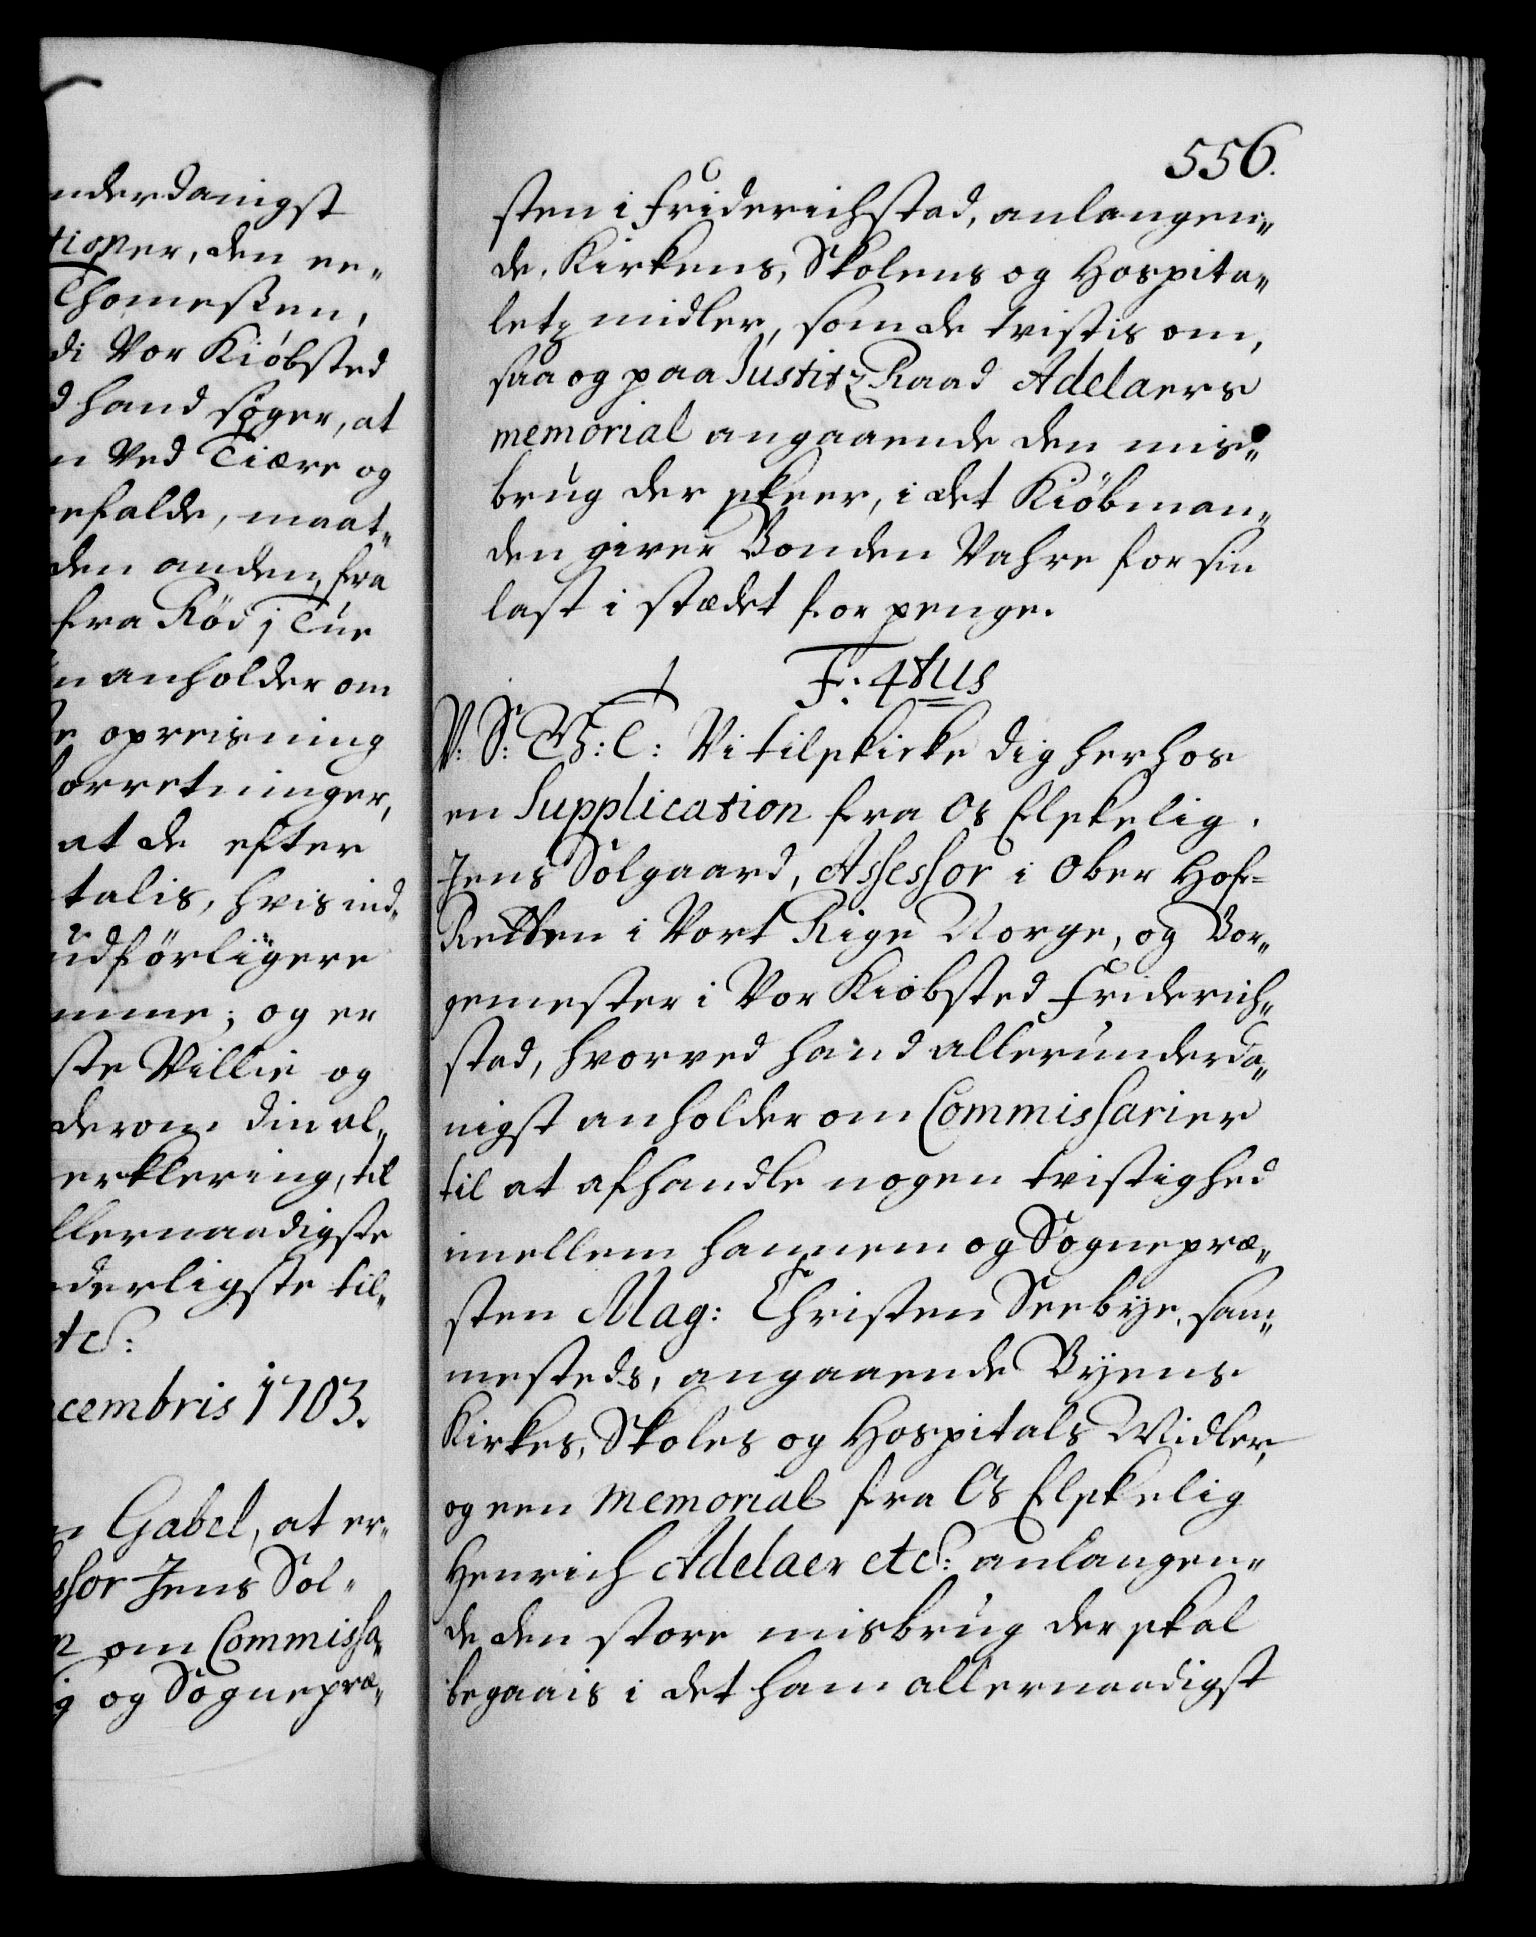 nderdanigst
tioner, den ee„
Thomeßen,
di Vor Kiøbsted
d hand søger, at
n Ved Tiære og
efalde, maat„
den anden, fra
fra Röd j Tue
n anholder om
e opreisning
forretninger,
at de efter
talis, hvis ind„
udförligere
mme; og er
ste Villie og
derom din al„
erklering, til
llernaadigste
derligste til„
etc:
cembris 1703.
n Gabel, at er„
ssor Jens Sol„
n om Commissa„
g og Sognepræ„
556.
sten i Friderichstad, anlangen„
de, Kirkens, Skolens og Hospita„
letz midler, som de tvistis om,
saa og paa Justitz Raad Adelaers
memorial angaaende den mis„
brug der skeer, i det Kiöbman„
den giver Bonden Vahre for sin
last i stædet for penge.
F: 4tus
V: S: G: T: Vi tilskicke dig herhos
en Supplication fra Os Elskelig
Jens Solgaard, Assessor i Ober Hof-
Retten i Vort Rige Norge, og Bor„
gemester i Vor Kiöbsted Friderich„
stad, hvorved hand allerunderda„
nigst anholder om Commissarier
til at afhandle nogen tvistighed
imellem hannem og Sognepræ„
sten Mag: Christen Seebye, sam„
mesteds, angaaende Byens
Kirkes, Skoles og Hospitals Midler,
og een memorial fra Os Elskelig
Henrich Adelaer etc: anlangen„
de den store misbrug der skal
begaais i det ham allernaadigst